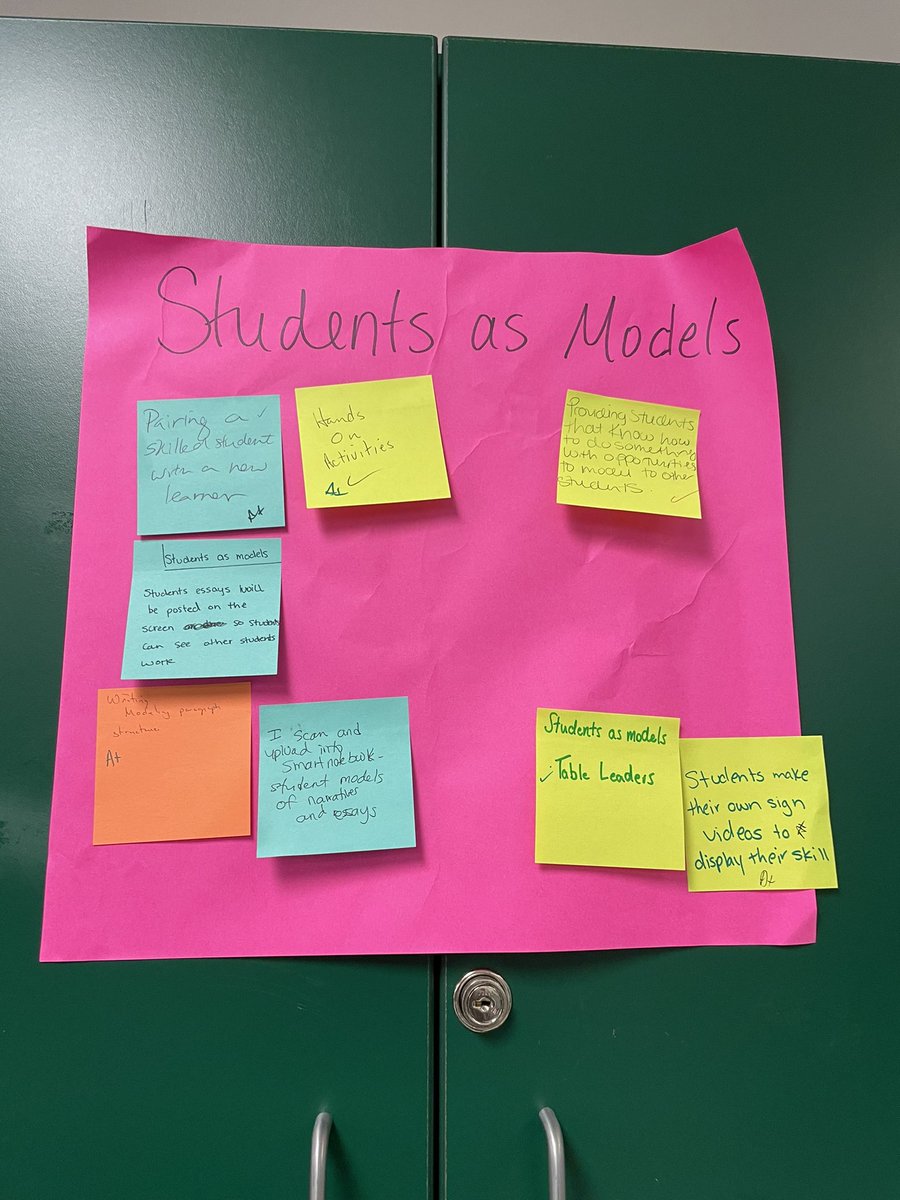 Students as Models
Pairing a ✓
skilled student
with a new
learner
A+
Hands
On
Activities
A+ ✓
Providing Students
that know how
to do something
with opportunities
to model to other
students. ✓
Students as models
Students essays will
be posted on the
screen so students
can see other students
work
Writing
Modeling paragraph
structure
A+
I scan and
upload into
Smartnotebook-
student models
of narratives
and essays
Students as models
✓ Table Leaders
Students make
their own sign
videos to
display their skill
A+